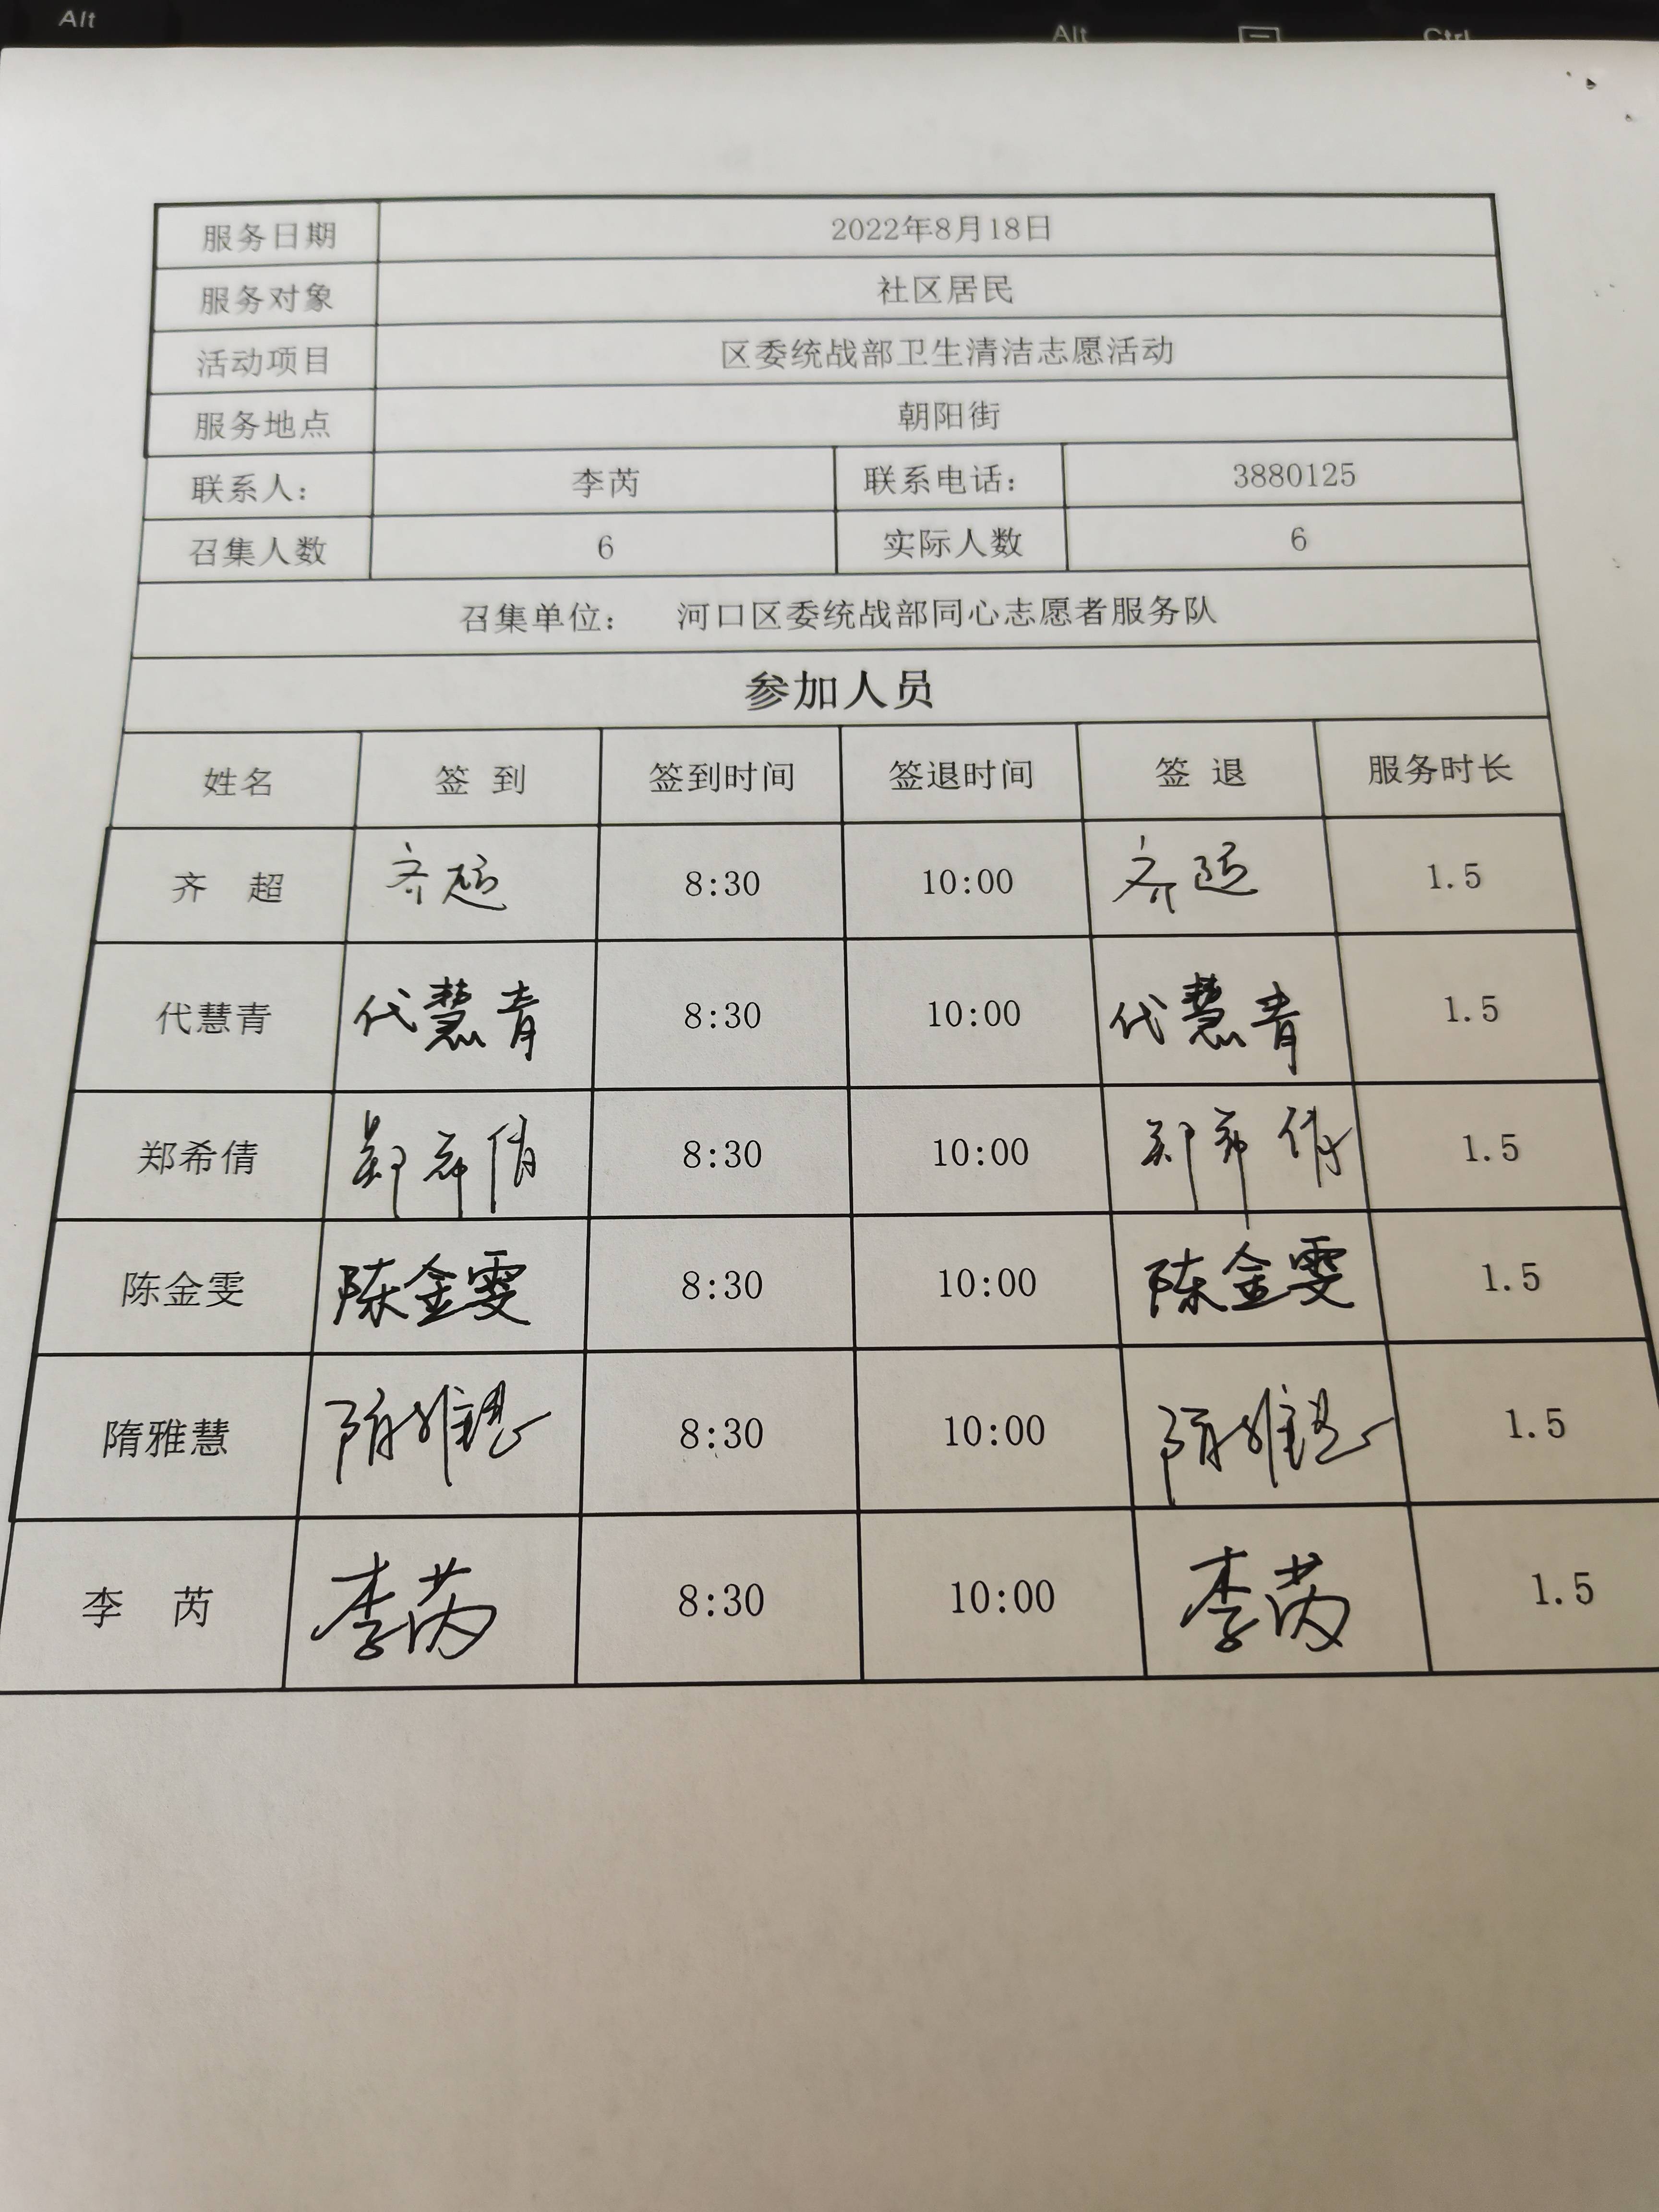 Alt
Alt
Ctrl
服务日期 2022年8月18日
服务对象 社区居民
活动项目 区委统战部卫生清洁志愿活动
服务地点 朝阳街
联系人： 李芮 联系电话： 3880125
召集人数 6 实际人数 6
召集单位： 河口区委统战部同心志愿者服务队
参加人员
姓名 签 到 签到时间 签退时间 签 退 服务时长
齐 超 齐超 8:30 10:00 齐超 1.5
代慧青 代慧青 8:30 10:00 代慧青 1.5
郑希倩 郑希倩 8:30 10:00 郑希倩 1.5
陈金雯 陈金雯 8:30 10:00 陈金雯 1.5
隋雅慧 隋雅慧 8:30 10:00 隋雅慧 1.5
李 芮 李芮 8:30 10:00 李芮 1.5